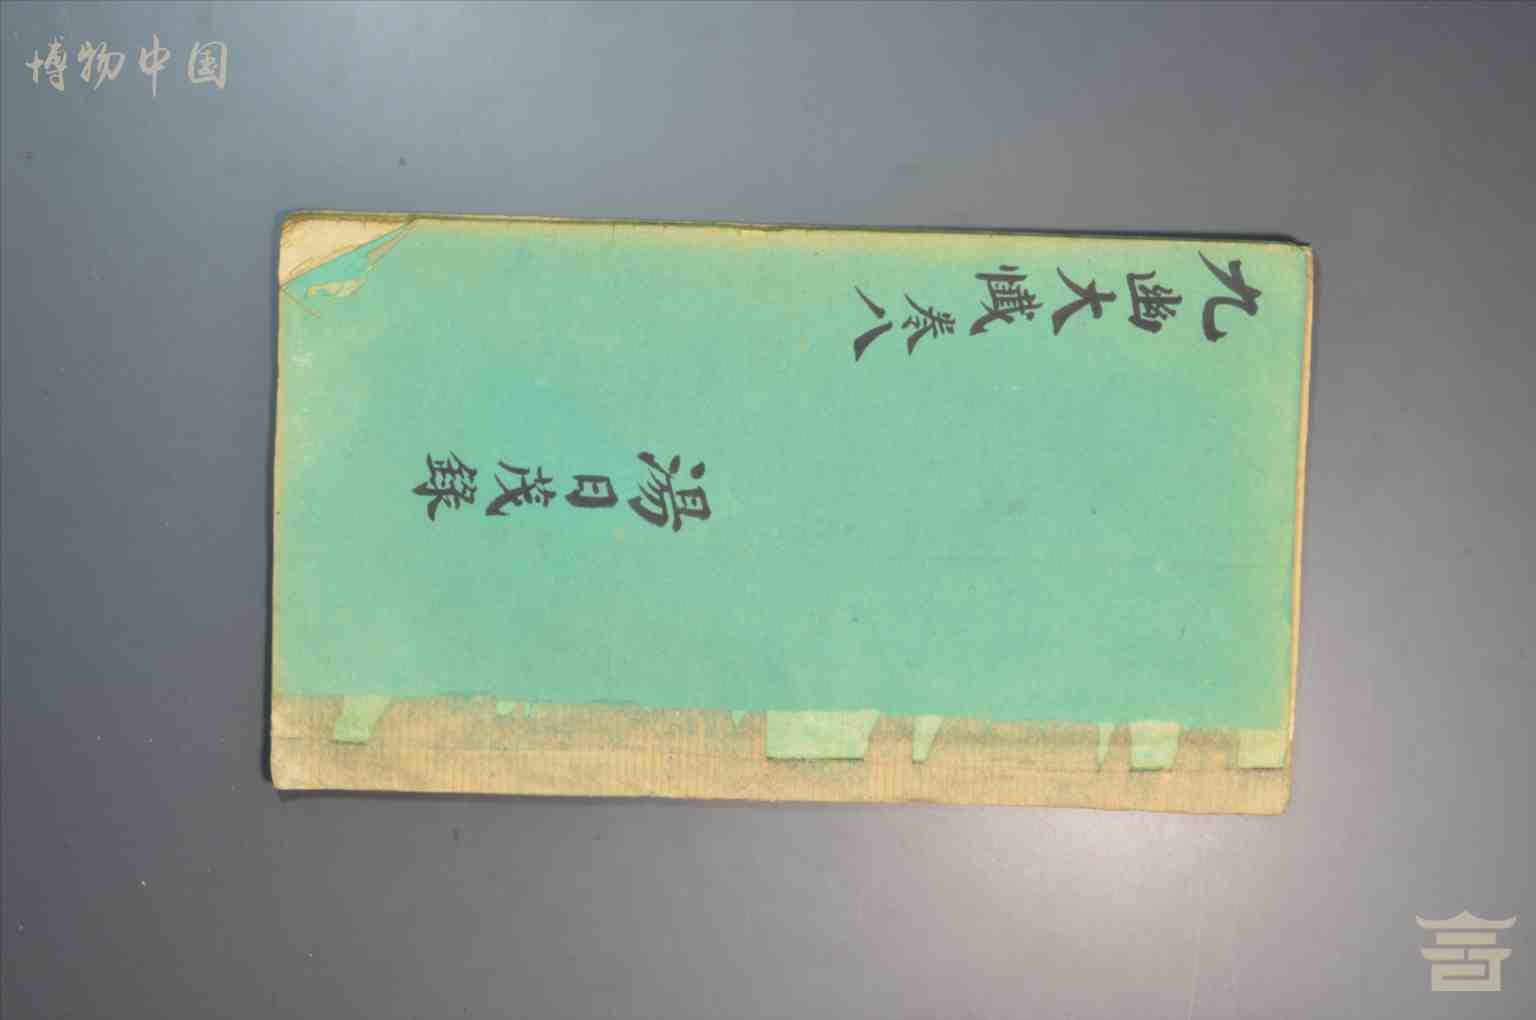 博物中国
九幽大懺卷八
湯日茂錄